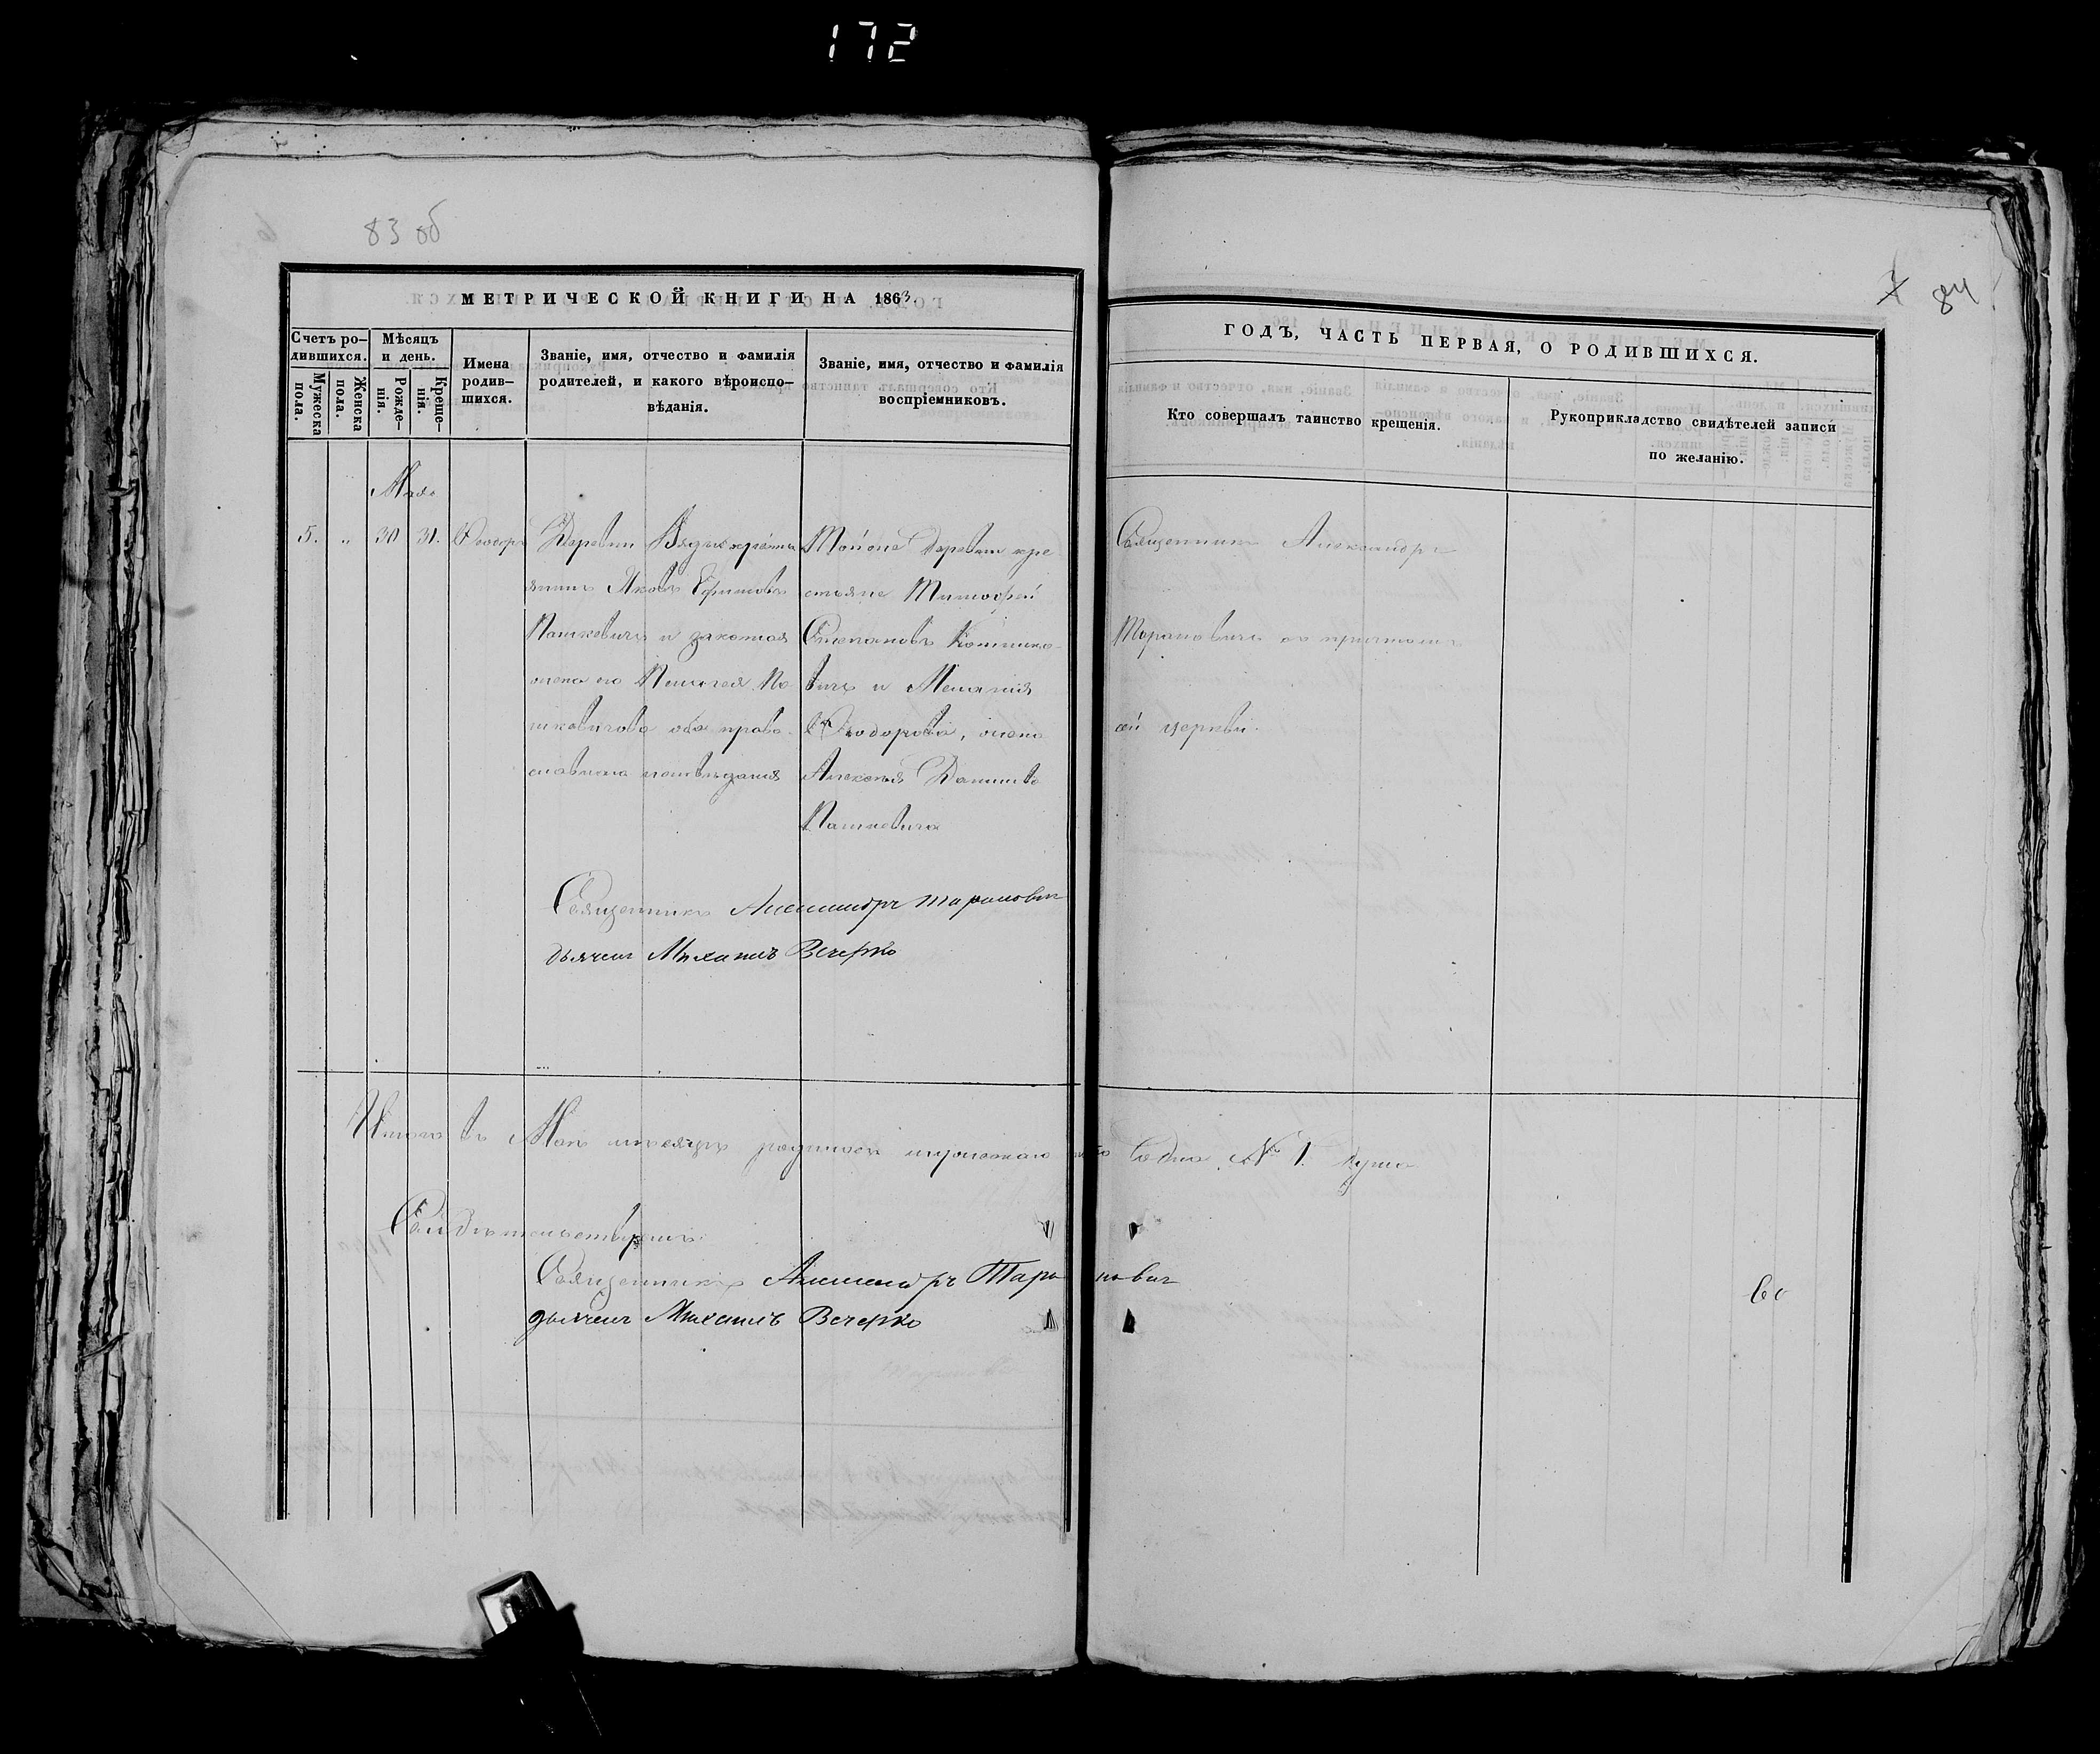 172
83 об
МЕТРИЧЕСКОЙ КНИГИ НА 1863
Счетъ ро-
дившихся.
Мужеска
пола.
Женска
пола.
Мѣсяцъ
и день.
Рожде-
нія.
Креще-
нія.
Имена
родив-
шихся.
Званіе, имя, отчество и фамилія
родителей, и какого вѣроиспо-
вѣданія.
Званіе, имя, отчество и фамилія
воспріемниковъ.
Мая
5. „ 30 31. Ѳеодоръ
Деревни
янинъ Яковъ Ефимовъ
Пашкевичъ и законная
жена его Пелагея Па
шкевичова оба право
славнаго исповѣданія
Тойже деревни кре
стьяне Тимофей
Степановъ
вичъ и Меланія
Ѳеодорова, жена
Алексѣя
Пашкевича
Священникъ Александръ Тарановичъ
дьячекъ Михаилъ Вечерко
Итого въ Маѣ мѣсяцѣ родилось мужескаго
Свидѣтельствуемъ
Священникъ Александръ Тарановичъ
дьячекъ Михаилъ Вечерко
7 84
ГОДЪ, ЧАСТЬ ПЕРВАЯ, О РОДИВШИХСЯ.
Кто совершалъ таинство крещенія.
Рукоприкладство свидѣтелей записи
по желанію.
Священникъ Александръ
Тарановичъ съ причтомъ
церкви.
№ 1. душа